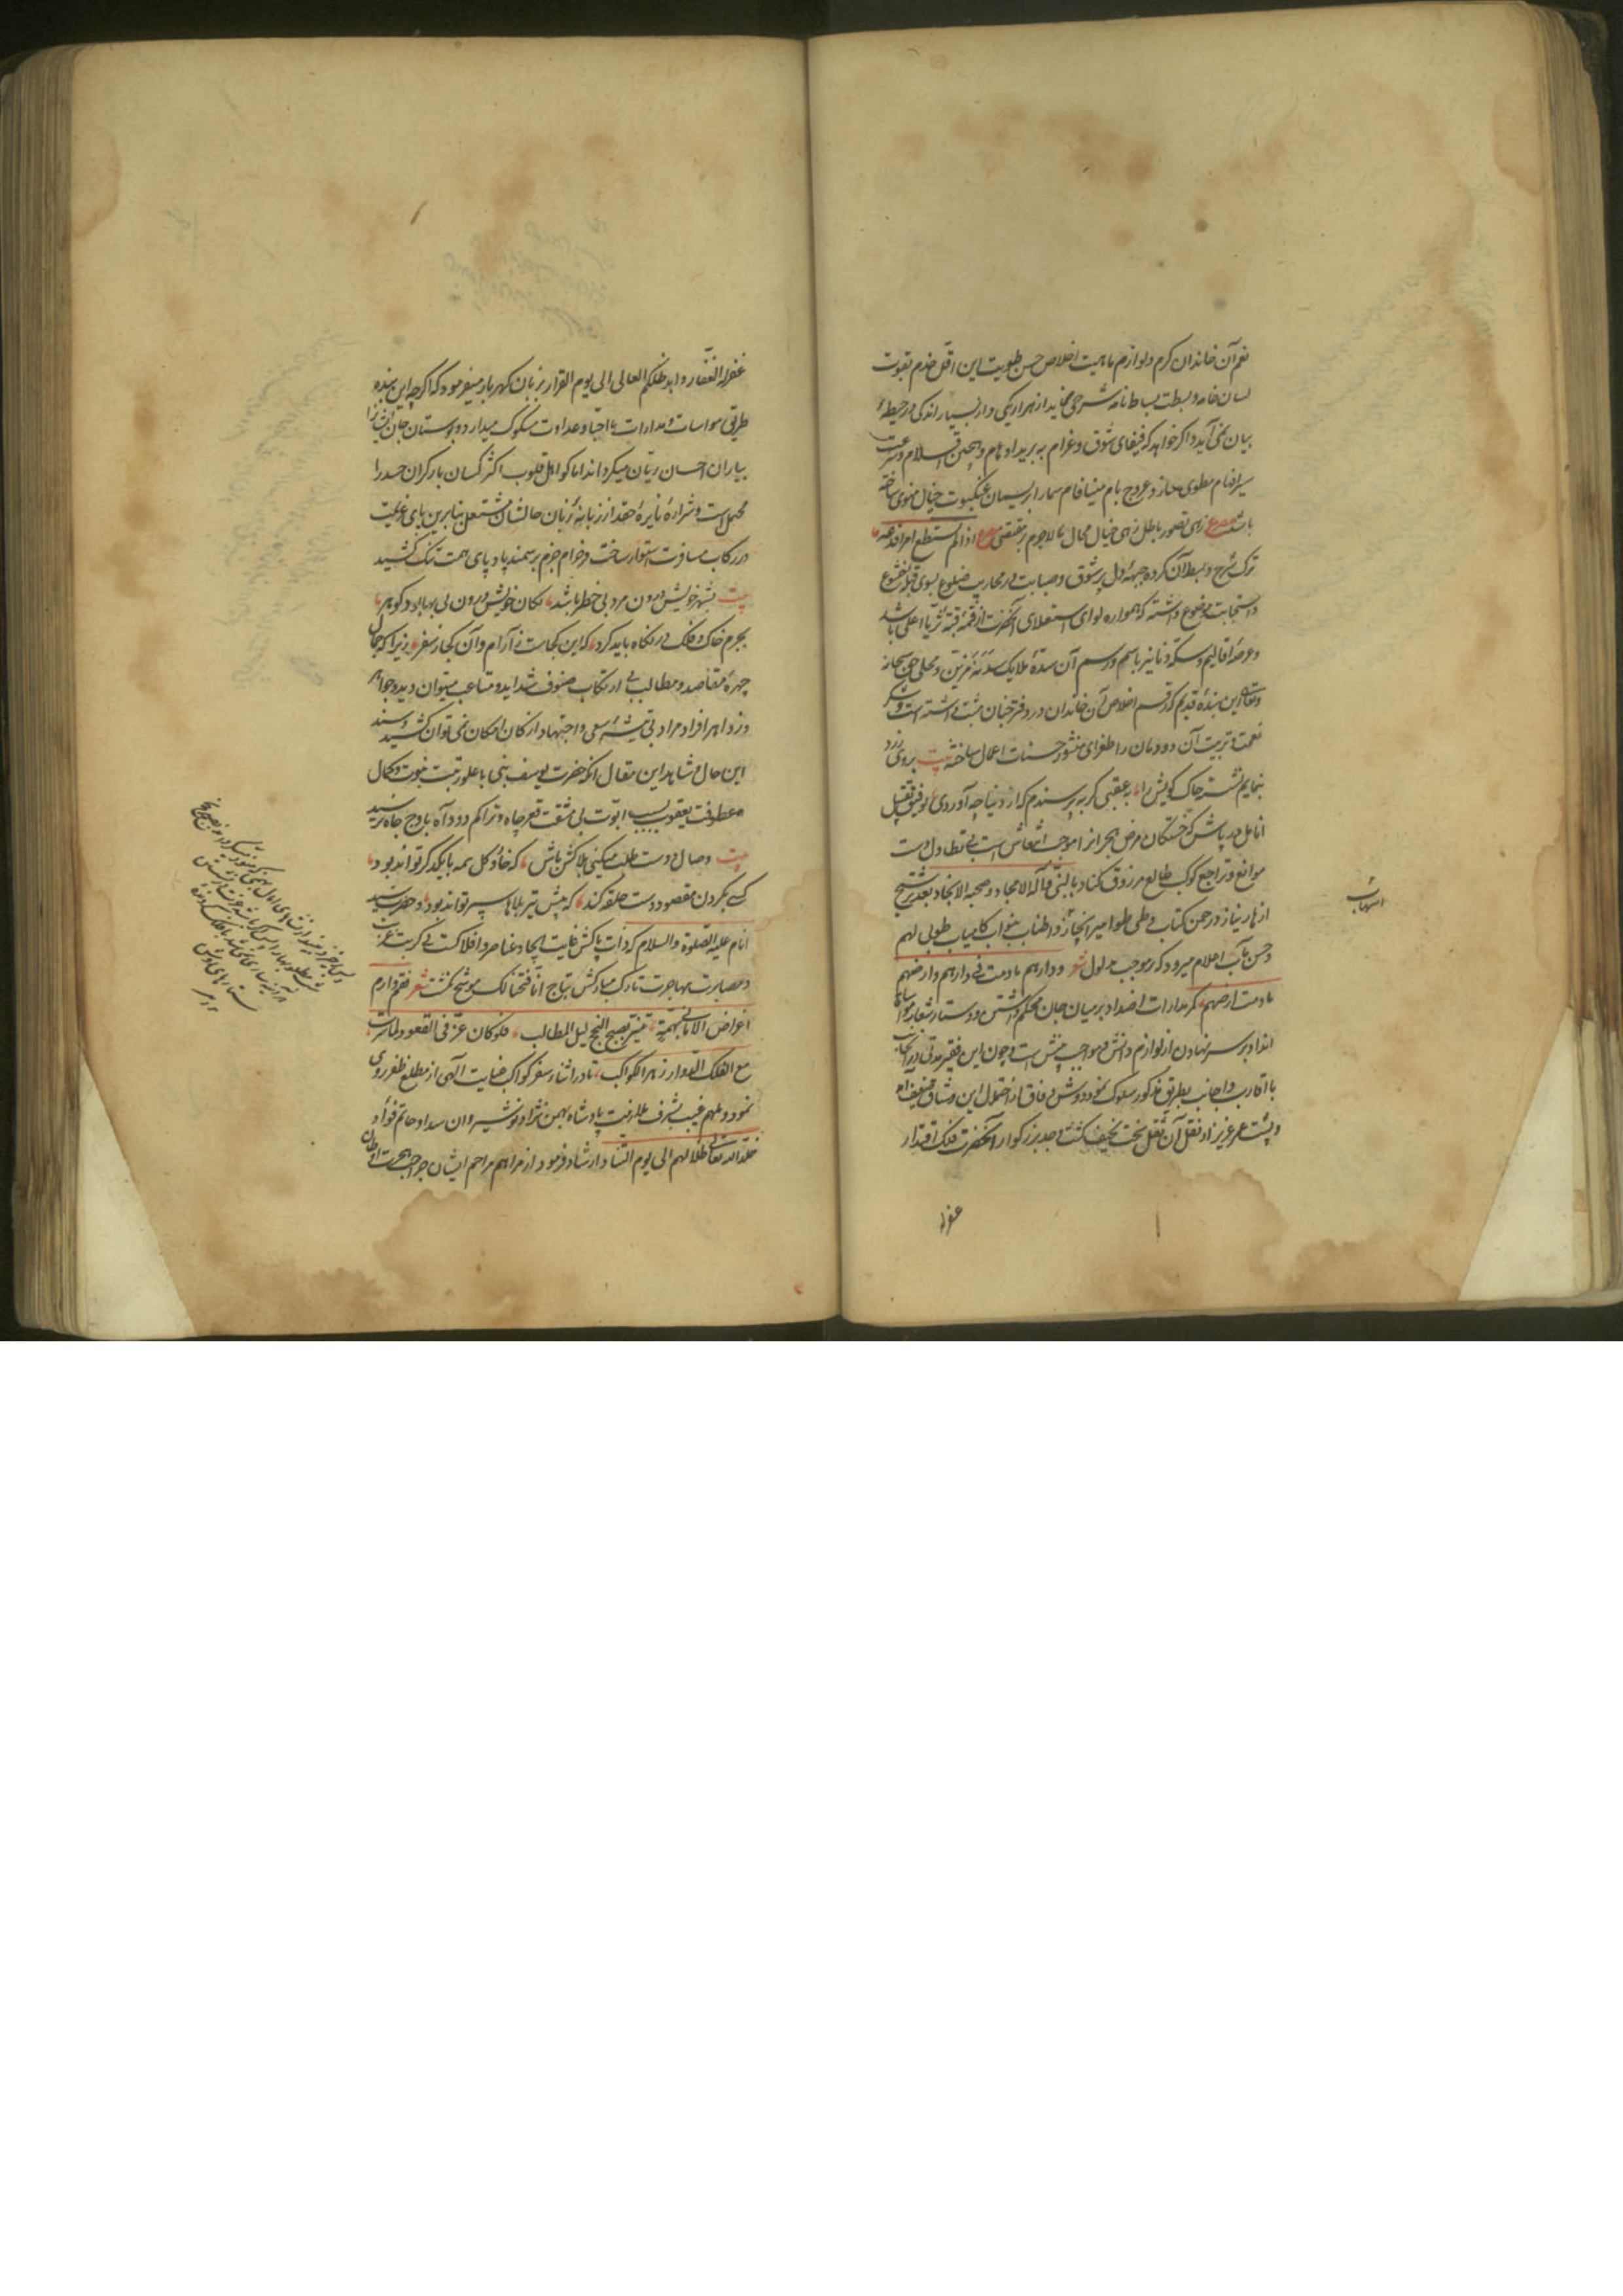 نعم آن خاندان کرم و لوازم ماهیت اخلاص حسن طویت این اقل خدم بقوت
لسان خامه و بسطت بساط نامه شرحی نماید از هزار یکی و از بسیار اندکی در حیطهٔ
بیان نمی آید و اگر خواهد که فیفای شوق و غرام به برید اوهام و هجین اقلام و سرعت
سیر افهام مطوی سازد و عروج بام مینافام سما را بریسمان عنکبوت خیال منوی ساخته
باشد مصرع زهی تصور باطل زهی خیال محال لاجرم بر مقتضی مصرع اذا لم تستطع امرا فدعه
ترک شرح و بسط آن کرده جبههٔ دل پر شوق و صبابت در محاریب ضلوع بسوی قبلهٔ خشوع
و استجابت موضوع داشته که همواره لوای استعلای آنحضرت از قمهٔ قبهٔ ثریا اعلی باشد
و عرصهٔ اقالیم و سکهٔ دنانیر باسم و رسم آن سدهٔ ملایک سدنه مزین و محلی حق سبحانه
و تعالی این بندهٔ قدیم که رقم اخلاص آن خاندان در دفتر جنان مثبت داشته است و شکر
نعمت و تربیت آن دودمان را طغرای منشور حسنات اعمال ساخته بیت بروی زرد
بنمایم نشستهٔ خاک کویش را به عقبی گر بپرسندم که از دنیا چه آوردی بتوفیق تقبیل
انامل دریاپاش که خستگان مرض هجر انرا موجب انتعاش است بی تطاول دست
موانع و تراجع کوکب طالع مرزوق کناد بالنبی و آله الامجاد و صحبه الانجاد بعد ترشیح
ازهار نیاز در چمن کتاب و طی طوامیر انجاز و اطناب بنواب کامیاب طوبی لهم
و حسن مآب اعلام میرود که بر موجب مدلول شعر و دارهم ما دمت فی دارهم و ارضهم
ما دمت ارضهم کمر مدارات اضداد بر میان جان محکم داشتن و دستار شعار مواسات
انداد بر سر نهادن از لوازم دانش و مواجب بینش است و چون این فقیر مدتی در آنجانب
با اقارب و اجانب بطریق مذکور سلوک نمود و دوش وفاق از تحمل این مشاق ضعیف آمد
و پشت عمر عزیز از نقل آن ثقل سخت نحیف گشت و جد بزرگوار آنحضرت فلک اقتدار
غفر له
التهاب
غفر له الغفار و ابد ظلکم العالی الی یوم القرار بزبان گهربار میفرمود که اگر چه این بنده
طریق مواسات و مدارات با احبا و عدا وت مسلوک میدارد و بوستان جان ایشانرا
بباران احسان ریان میگرداند اما کواهل قلوب اکثر کسان بار گران حسد را
محملست و شرارهٔ نایرهٔ حقد از زبانهٔ زبان حالشان مشتعل بنابرین پای عزیمت
در رکاب مسافرت استوار ساخت و حزام جزم بر سمند بادپای همت تنگ کشید
بیت بشهر خویش درون مرد بی خطر باشد بکان خویش درون بی بها بود گوهر
بجرم خاک و فلک در نگاه باید کرد که این کجاست ز آرام و آن کجا ز سفر زیرا که جمال
چهرهٔ مقاصد و مطالب بی ارتکاب صنوف شداید و متاعب میتوان دید و جواهر
زواهر افراد مراد بی تیشهٔ سعی و اجتهاد از کان امکان نمی توان کشید و سند
این حال و شاهد این مقال آنکه حضرت یوسف نبی با علو رتبت نبوت و کمال
عطوفت یعقوب بسبب ابوت بی مشقت قعر چاه و تراکم دود آه باوج جاه نرسید
بیت وصال دوست طلب میکنی بلاکش باش که خار و گل همه با یکدگر تواند بود
کسی بگردن مقصود دست حلقه کند که پیش تیر بلاها سپر تواند بود و حضرت سید
انام علیه الصلوة و السلام که ذات پاکش غایت ایجاد عناصر و افلاکست بی کربت غربت
و مصابرت مهاجرت تارک مبارکش بتاج انا فتحنا لک موشح نگشت شعر فقم و ارم
اغراض الامانی بهمة تنیر بصبح النجح لیل المطالب فلو کان عز فی القعود لما سرت
مع الفلک الدوار زهر الکواکب تا در اثناء سفر کواکب عنایت آلهی از مطلع ظفر روی
نمود و ملهم غیب بشرف ملازمت پادشاه بهمن نژاد نوشیروان سداد حاتم فواد
خلد الله تعالی ظلالهم الی یوم التناد ارشاد فرمود از مراهم مراحم ایشان جراحت هجرت اوطان